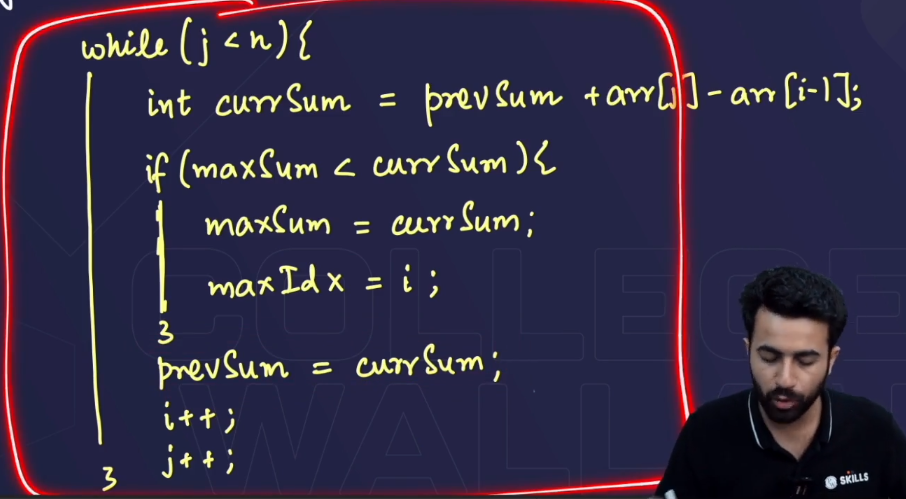 while (j < n) {
int currSum = prevSum + arr[j] - arr[i-1];
if (maxSum < currSum) {
maxSum = currSum;
maxIdx = i;
}
prevSum = currSum;
i++;
j++;
}
COLLEGE
WALLAH
SKILLS